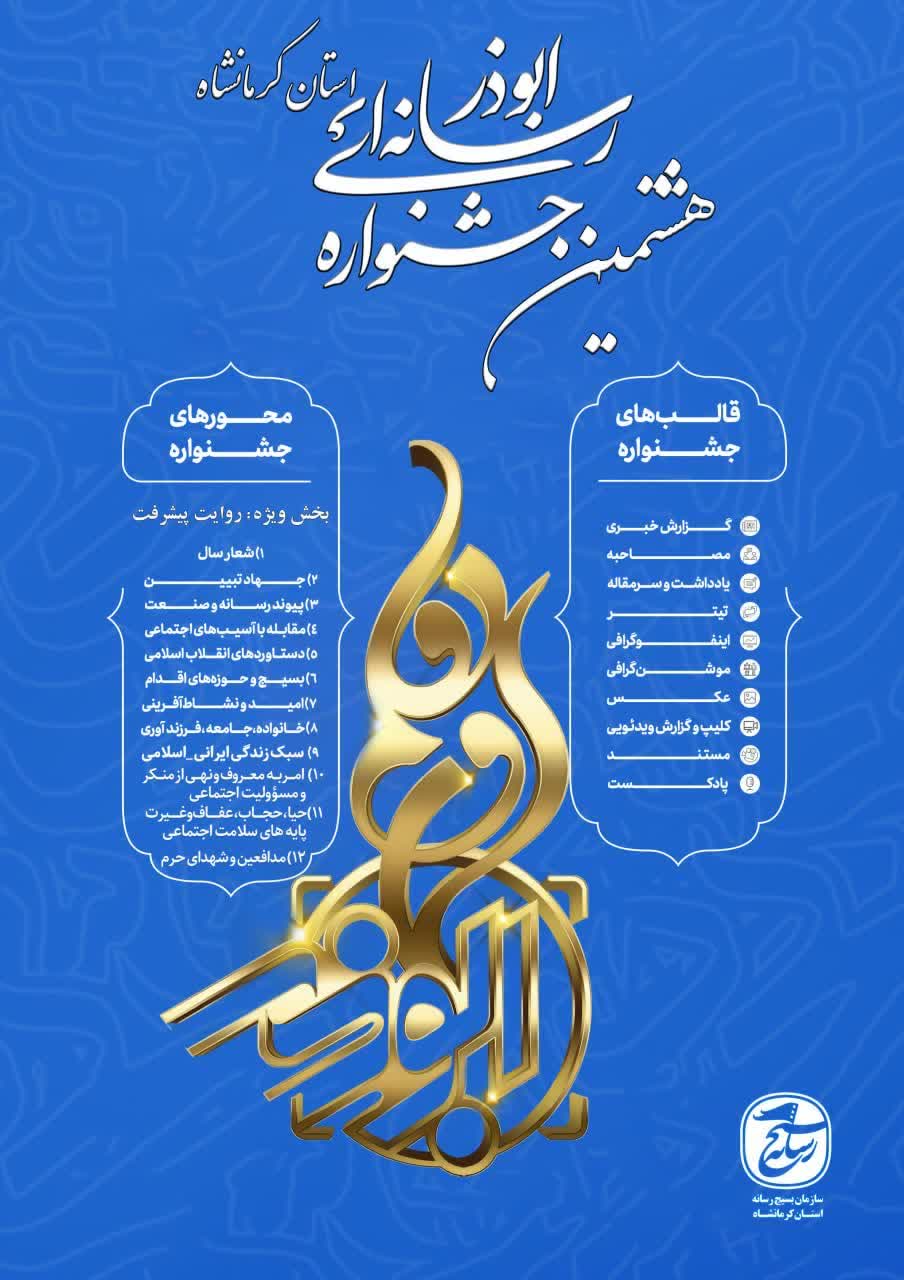 هشتمین جشنواره
رسانه‌ای
ابوذر
استان کرمانشاه
قالب‌های
جشنواره
گزارش خبری
مصاحبه
یادداشت و سرمقاله
تیتر
اینفوگرافی
موشن‌گرافی
عکس
کلیپ و گزارش ویدئویی
مستند
پادکست
محورهای
جشنواره
بخش ویژه: روایت پیشرفت
۱) شعار سال
۲) جهاد تبیین
۳) پیوند رسانه و صنعت
٤) مقابله با آسیب‌های اجتماعی
٥) دستاوردهای انقلاب اسلامی
٦) بسیج و حوزه‌های اقدام
۷) امید و نشاط‌آفرینی
۸) خانواده، جامعه، فرزندآوری
۹) سبک زندگی ایرانی_اسلامی
۱۰) امر به معروف و نهی از منکر
و مسؤولیت اجتماعی
۱۱) حیا، حجاب، عفاف و غیرت
پایه های سلامت اجتماعی
۱۲) مدافعین و شهدای حرم
بسیج
رسانه
سازمان بسیج رسانه
استان کرمانشاه